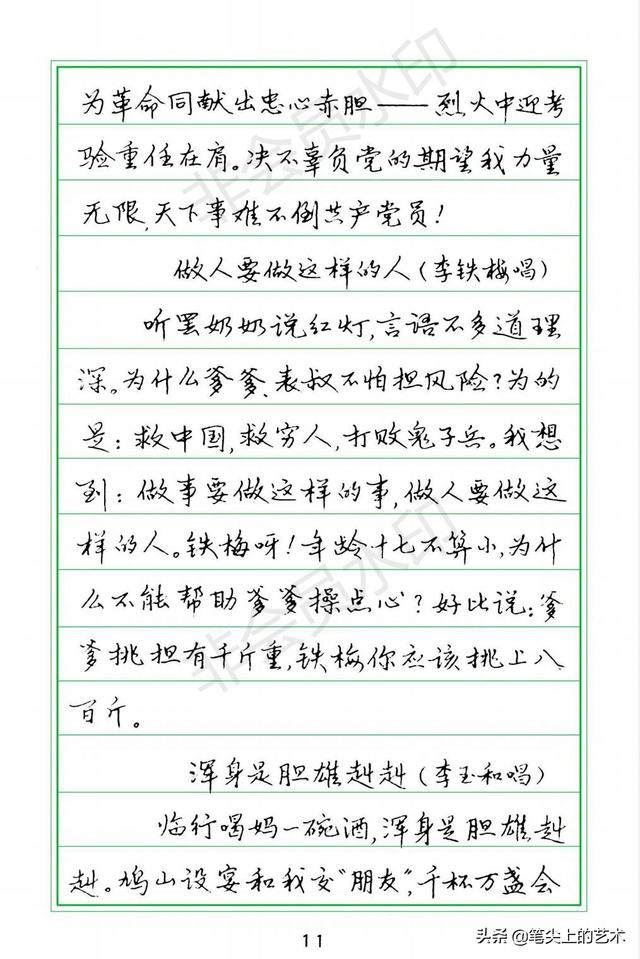 为革命同献出忠心赤胆——烈火中迎考
验重任在肩。决不辜负党的期望我力量
无限,天下事难不倒共产党员！
做人要做这样的人（李铁梅唱）
听罢奶奶说红灯,言语不多道理
深。为什么爹爹、表叔不怕担风险？为的
是：救中国,救穷人,打败鬼子兵。我想
到：做事要做这样的事,做人要做这
样的人。铁梅呀！年龄十七不算小,为什
么不能帮助爹爹操点心？好比说：爹
爹挑担有千斤重,铁梅你应该挑上八
百斤。
浑身是胆雄赳赳（李玉和唱）
临行喝妈一碗酒,浑身是胆雄赳
赳。鸠山设宴和我交“朋友”,千杯万盏会
11
头条@笔尖上的艺术
非会员水印
非会员水印